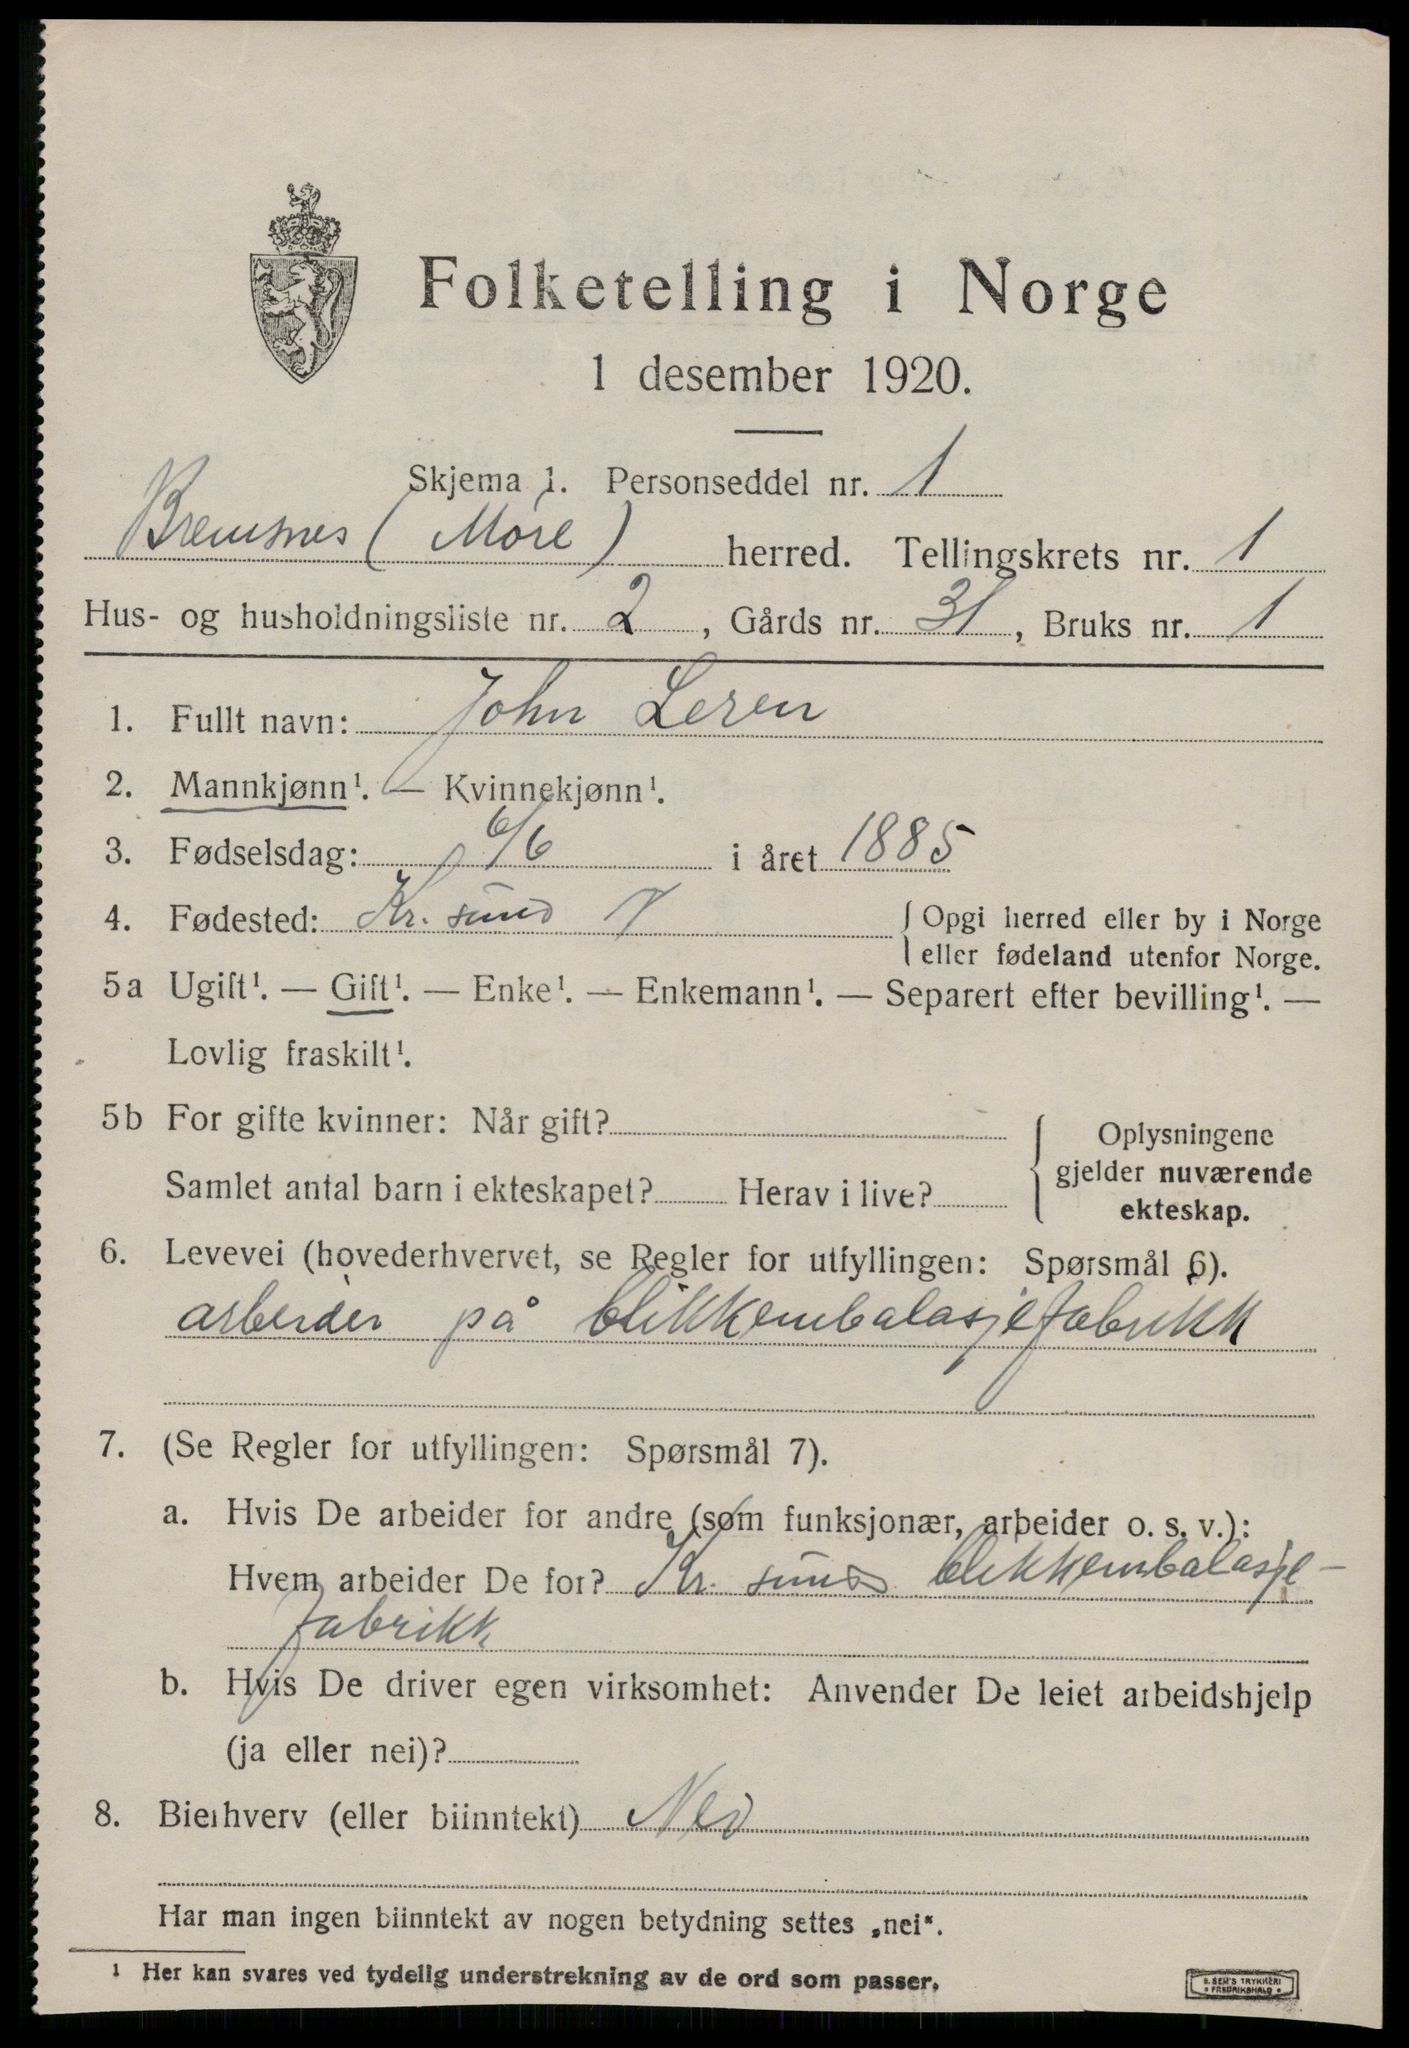 Folketelling i Norge
1 desember 1920.
Skjema 1. Personseddel nr. 1
Bremsnes (Møre) herred. Tellingskrets nr. 1
Hus- og husholdningsliste nr. 2, Gårds nr. 31, Bruks nr. 1
1. Fullt navn: John Leren
2. Mannkjønn¹. — Kvinnekjønn¹.
3. Fødselsdag: 6/6 i året 1885
4. Fødested: Kr. sund { Opgi herred eller by i Norge
eller fødeland utenfor Norge.
5a Ugift¹. — Gift¹. — Enke¹. — Enkemann¹. — Separert efter bevilling¹. —
Lovlig fraskilt¹.
5b For gifte kvinner: Når gift? { Oplysningene
gjelder nuværende
ekteskap.
Samlet antal barn i ekteskapet? Herav i live?
6. Levevei (hovederhvervet, se Regler for utfyllingen: Spørsmål 6).
arbeider på blikkembalasjefabrikk
7. (Se Regler for utfyllingen: Spørsmål 7).
a. Hvis De arbeider for andre (som funksjonær, arbeider o. s. v.):
Hvem arbeider De for? Kr. sunds blikkembalasje-
fabrikk
b. Hvis De driver egen virksomhet: Anvender De leiet arbeidshjelp
(ja eller nei)?
8. Bierhverv (eller biinntekt) Nei
Har man ingen biinntekt av nogen betydning settes „nei“.
¹ Her kan svares ved tydelig understrekning av de ord som passer.
S. SEM'S TRYKKERI
* FREDRIKSHALD *